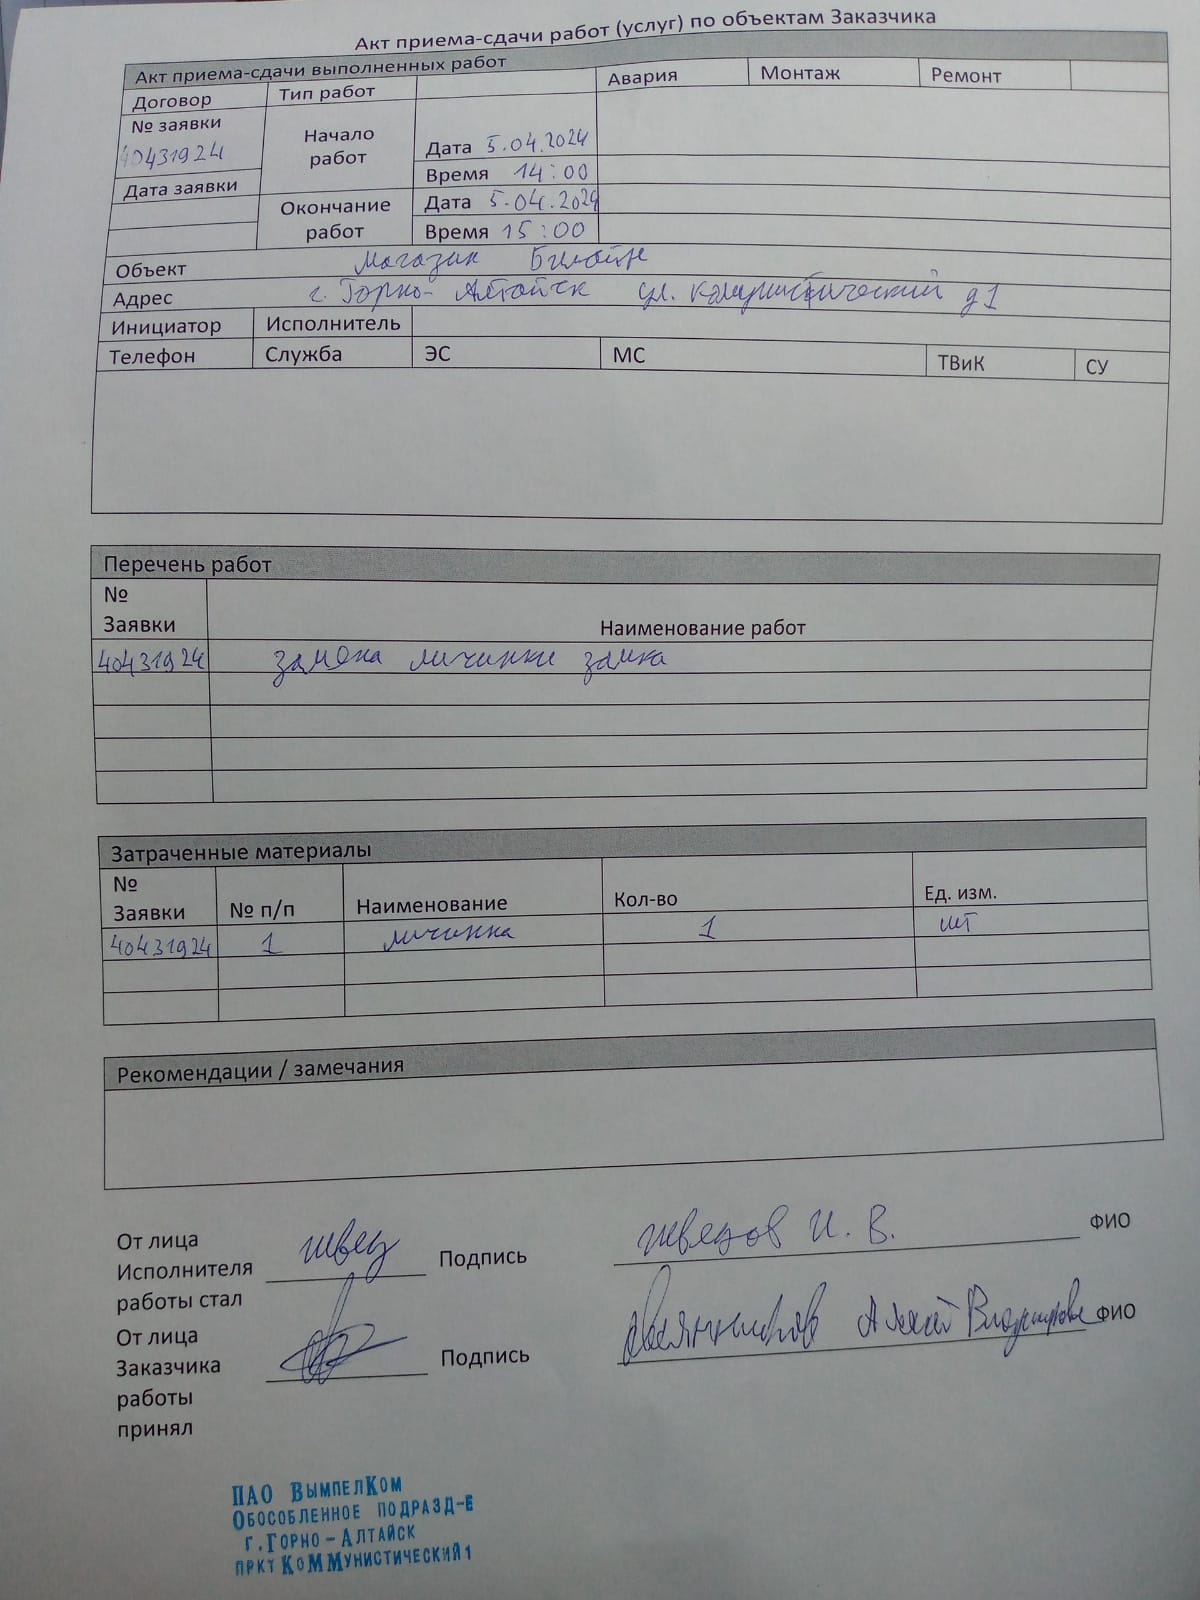 Акт приема-сдачи работ (услуг) по объектам Заказчика
Акт приема-сдачи выполненных работ
Договор Тип работ Авария Монтаж Ремонт
№ заявки
40431924
Начало работ
Дата 5.04.2024
Время 14:00
Дата заявки
Окончание работ
Дата 5.04.2024
Время 15:00
Объект магазин Билайн
Адрес г. Горно-Алтайск ул. коммунистический д 1
Инициатор Исполнитель
Телефон Служба ЭС МС ТВиК СУ
Перечень работ
№ Заявки Наименование работ
40431924 замена личинки замка
Затраченные материалы
№ Заявки № п/п Наименование Кол-во Ед. изм.
40431924 1 личинка 1 шт
Рекомендации / замечания
От лица
Исполнителя Подпись Швецов И. В. ФИО
работы стал
От лица
Заказчика Подпись Алексей Владимирович ФИО
работы
принял
ПАО ВымпелКом
Обособленное подразд-е
г.Горно-Алтайск
пркт КоММунистический 1